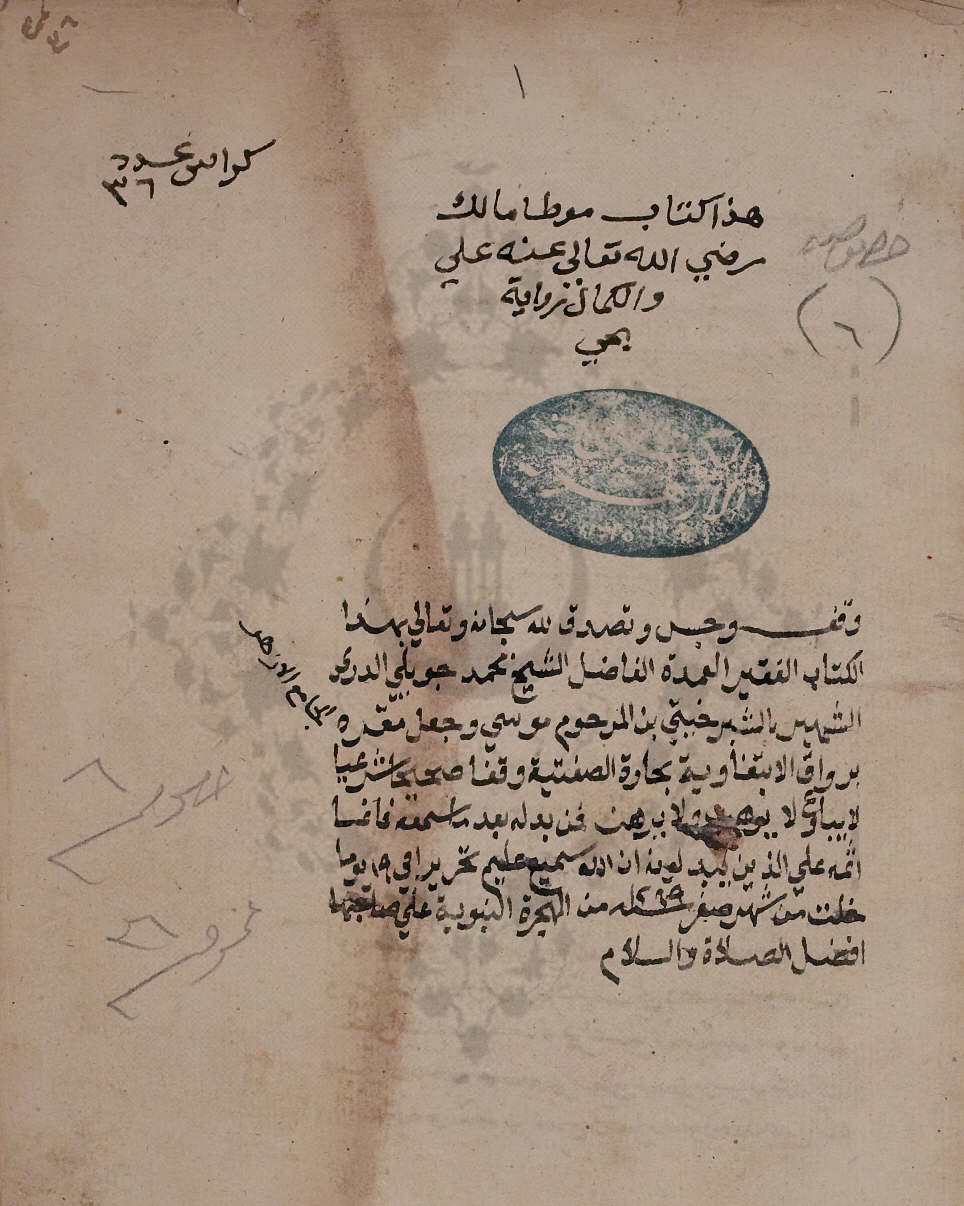 ١
كراس عدد
٣٦
هذا كتاب موطا مالك
رضي الله تعالى عنه علي
والكمال رواية
يحي
خصوصيه
(٦)
وقف وحبس وتصدق لله سبحانه وتعالي بهذا
الكتاب الفقير العمدة الفاضل الشيخ محمد
الشهير بالشبرخيتي بن المرحوم موسي وجعل مقره
برواق الابتغاوية بحارة الصفتية وقفا صحيحا شرعيا
لا يباع ولا يوهب ولا يرهن فمن بدله بعد ما سمعه فانما
اثمه علي الذين يبدلونه ان الله سميع عليم تحريرا في ١٩ يوما
خلت من شهر صفر سنة من الهجرة النبوية علي صاحبها
افضل الصلاة والسلام
بالجامع الازهر
خصوص ٦
عمو ٢٦